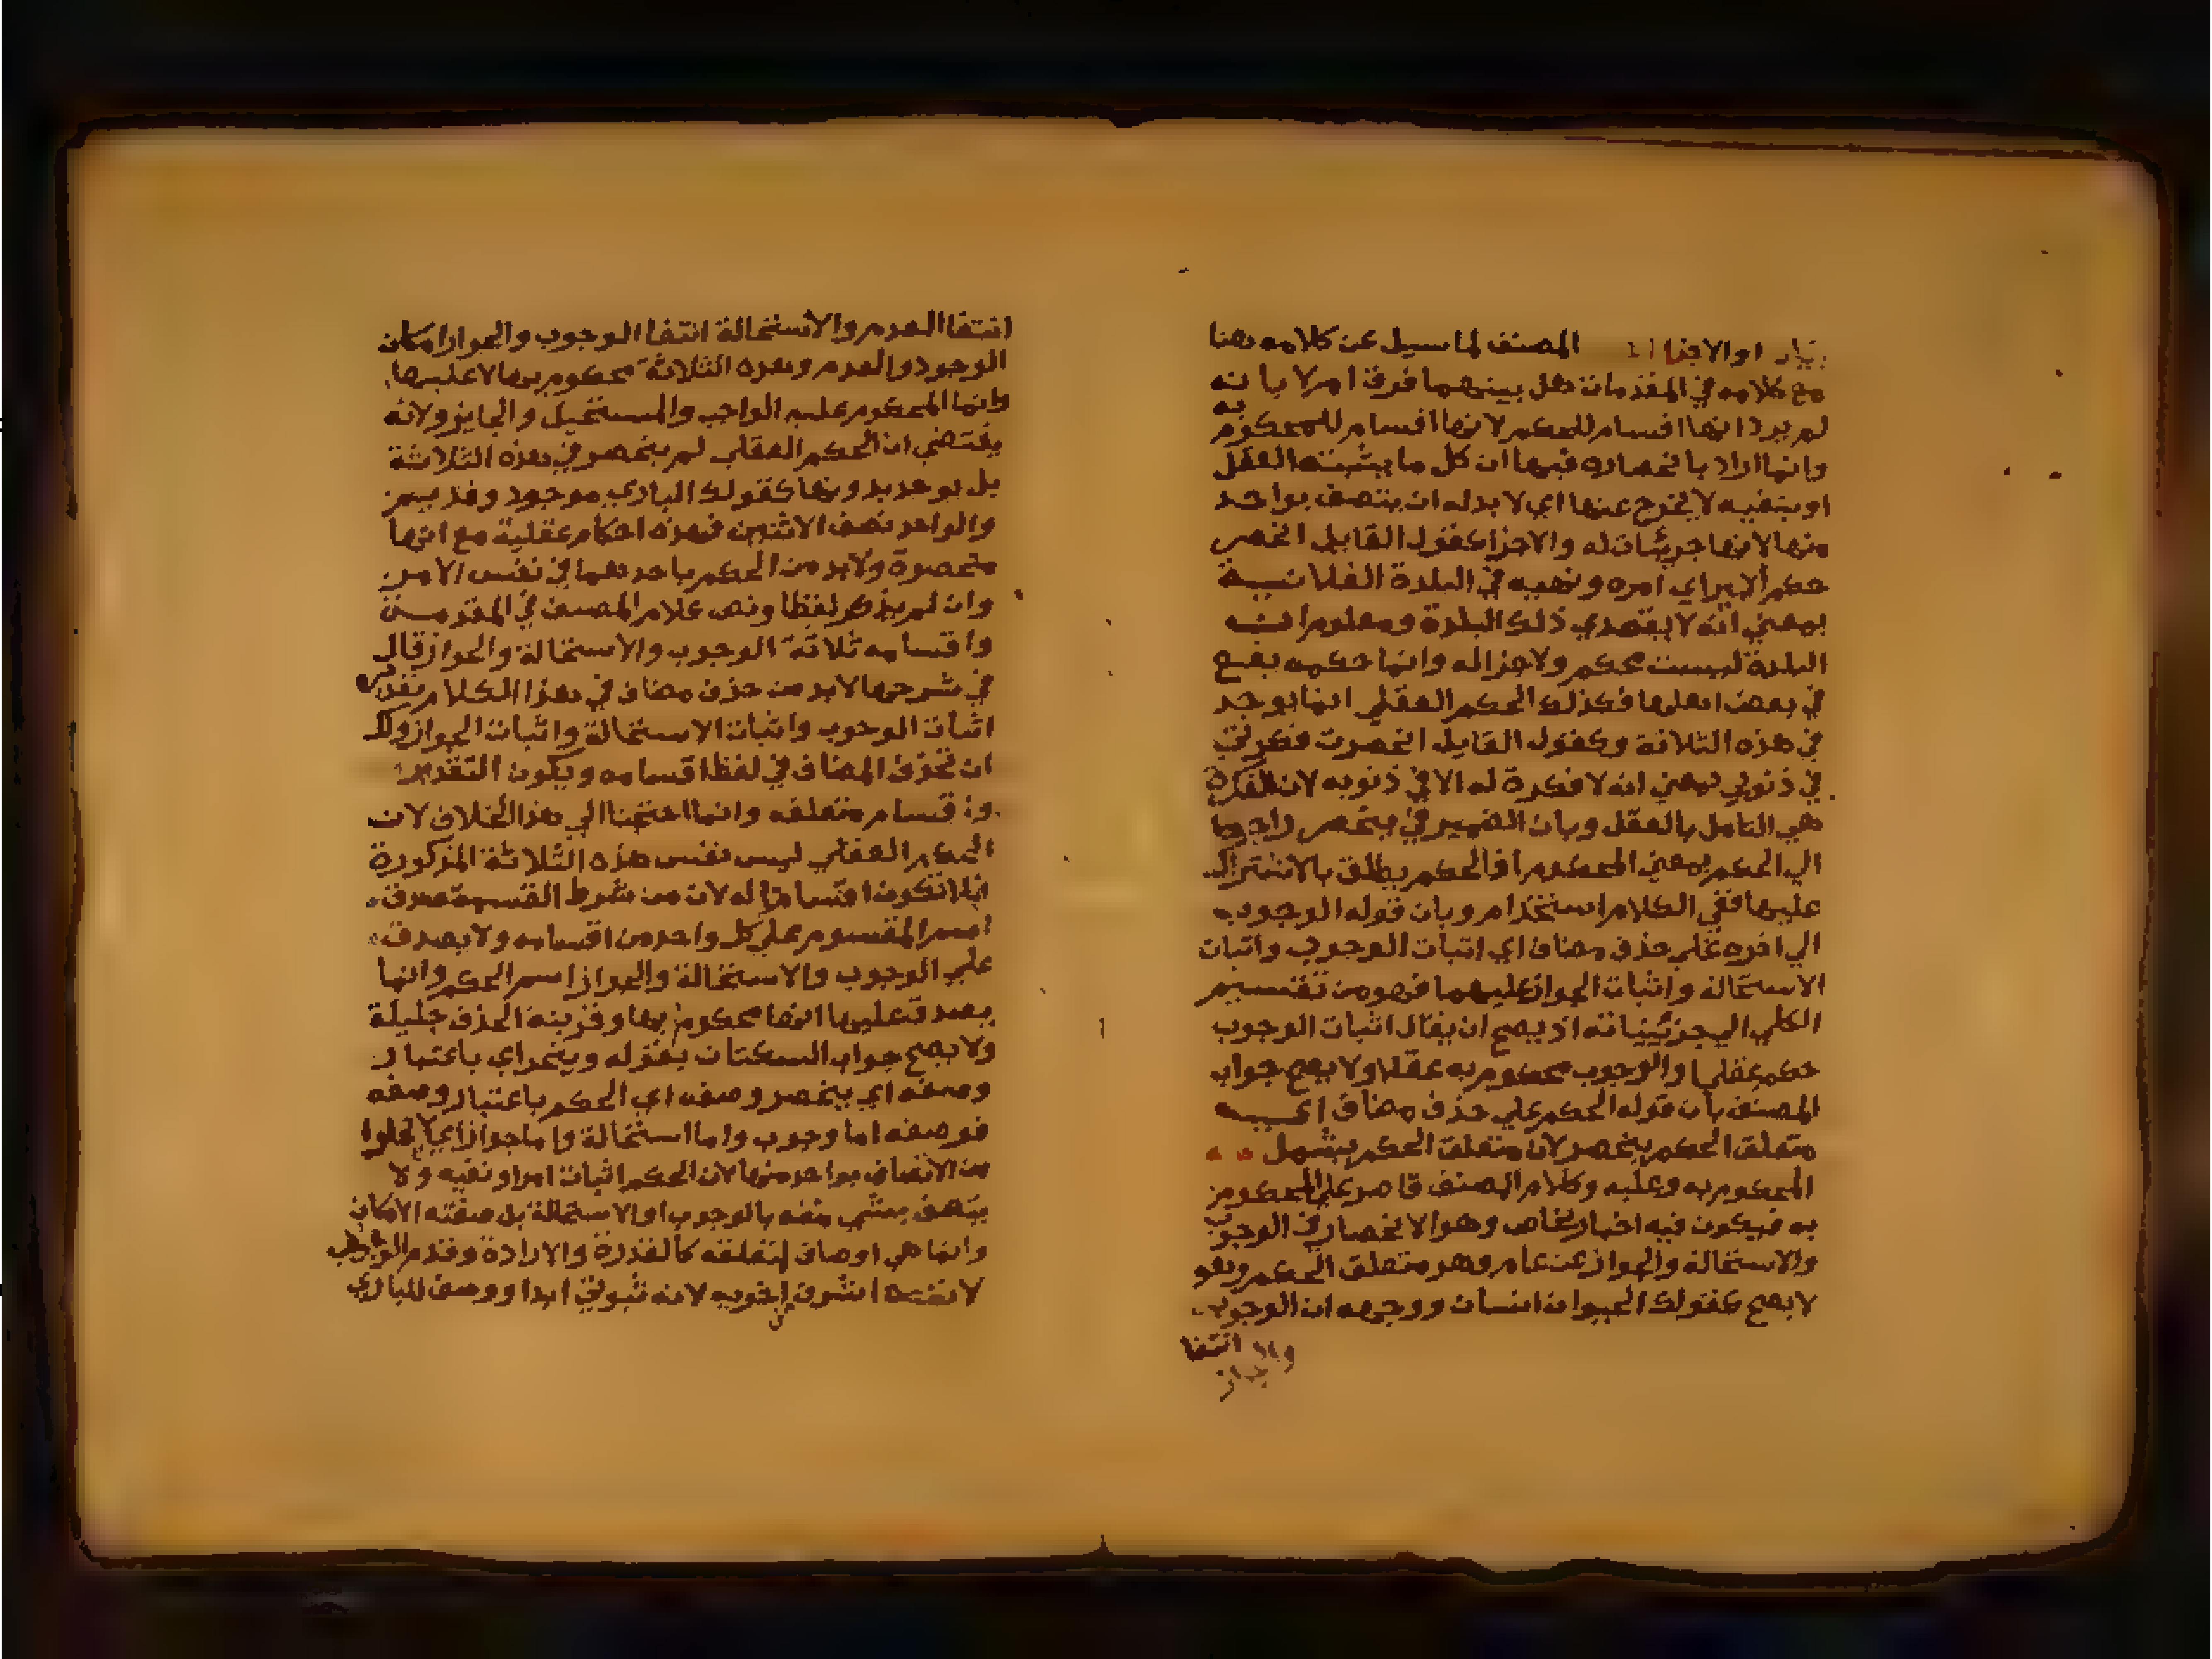 المصنف لما سيل عن كلامه هنا
مع كلامه في المقدمات هل بينهما فرق ام لا بانه
لم يرد انها اقسام للحكم لانها اقسام للمحكوم به
وانما اراد بانحصاره فيها ان كل ما يثبته العقل
او ينفيه لا يخرج عنها اي لا بد له ان يتصف بواحد
منها لا انها جزئيات له والاجزا كقول القايل انحصر
حكم الامير اي امره ونهيه في البلدة الفلانية
بمعني انه لا يتعدي ذلك البلدة ومعلوم انه
البلدة ليست بحكم ولا جزا له وانما حكمه يقع
في بعض اهلها فكذلك الحكم العقلي انما يوجد
في هذه الثلاثة وكقول القايل انحصرت فكرتي
في ذنوبي بمعني انه لا فكرة له الا في ذنوبه لان الفكرة
هي التامل بالعقل وبان الضمير في ينحصر راجع
الي الحكم بمعني المحكوم اذ الحكم يطلق بالاشتراك
عليهما ففي الكلام استخدام وبان قوله الوجوب
الي اخره علي حذف مضاف اي اثبات الوجوب واثبات
الاستحالة واثبات الجواز عليهما فهو من تقسيم
الكلي الي جزئيياته اذ يصح ان يقال اثبات الوجوب
حكم عقلي والوجوب محكوم به عقلا ولا يصح جواب
المصنف بان قوله الحكم علي حذف مضاف اي
متعلق الحكم ينحصر لان متعلق الحكم يشمل
المحكوم به وعليه وكلام المصنف قاصر علي المحكوم
به فيكون فيه اخبار بخاص وهو الانحصار في الوجوب
والاستحالة والجواز عن عام وهو متعلق الحكم وهو
لا يصح كقولك الحيوان انسان ووجهه ان الوجوب
انتفا
انتفا العدم والاستحالة انتفا الوجوب والجواز امكان
الوجود والعدم وهذه الثلاثة محكوم بها لا عليها
وانما المحكوم عليه الواجب والمستحيل والجايز ولانه
يقتضي ان الحكم العقلي لم ينحصر في هذه الثلاثة
بل يوجد بدونها كقولك الباري موجود وقديم
والواحد نصف الاثنين فهذه احكام عقلية مع انها
منحصرة ولا بد من الحكم باحدهما في نفس الامر
وان لم يذكر لفظا ونص كلام المصنف في المقدمة
واقسامه ثلاثة الوجوب والاستحالة والجواز قال
في شرحها لا بد من حذف مضاف في هذا الكلام تقديره
اثبات الوجوب واثبات الاستحالة واثبات الجواز ولك
ان تحذف المضاف في لفظ اقسامه ويكون التقدير
واقسام متعلقه وانما احتجنا الي هذا الخلاف لان
الحكم العقلي ليس نفس هذه الثلاثة المذكورة
فلا تكون اقساما له لان من شرط القسمة صدق
اسم المقسوم علي كل واحد من اقسامه ولا يصدق
علي الوجوب والاستحالة والجواز اسم الحكم وانما
يصدق عليها انها محكوم بها وقرينة الحذف جليلة
ولا يصح جواب السكتان بقوله وينحراي باعتبار
وصفه اي ينحصر وصفه اي الحكم باعتبار وصفه
فوصفه اما وجوب واما استحالة واما جواز اي لا يخلوا
من الاتصاف بواحد منها لان الحكم اثبات امر او نفيه ولا
يتصف بشي منه بالوجوب او الاستحالة بل صفته الامكان
وانما هي اوصاف لمتعلقه كالقدرة والارادة وقدم الواجب
لانه اشرف لانه ثبوتي ابدا ووصف للباري